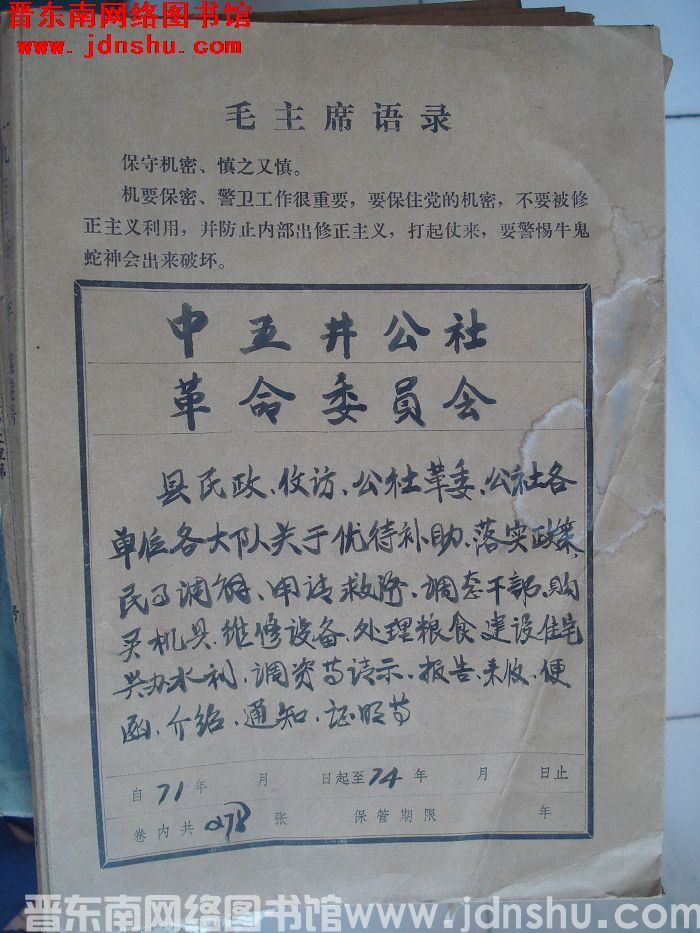 晋东南网络图书馆
www.jdnshu.com
毛主席语录
保守机密、慎之又慎。
机要保密、警卫工作很重要，要保住党的机密，不要被修
正主义利用，并防止内部出修正主义，打起仗来，要警惕牛鬼
蛇神会出来破坏。
中五井公社
革命委员会
县民政、收访、公社革委、公社各
单位各大队关于优待补助、落实政策、
民事调解、申请救济、调查干部、购
买机具、维修设备、处理粮食、建设住宅
兴办水利、调资等请示、报告、来收、便
函、介绍、通知、证明等
自71年 月 日起至74年 月 日止
卷内共278张 保管期限 年
晋东南网络图书馆 www.jdnshu.com